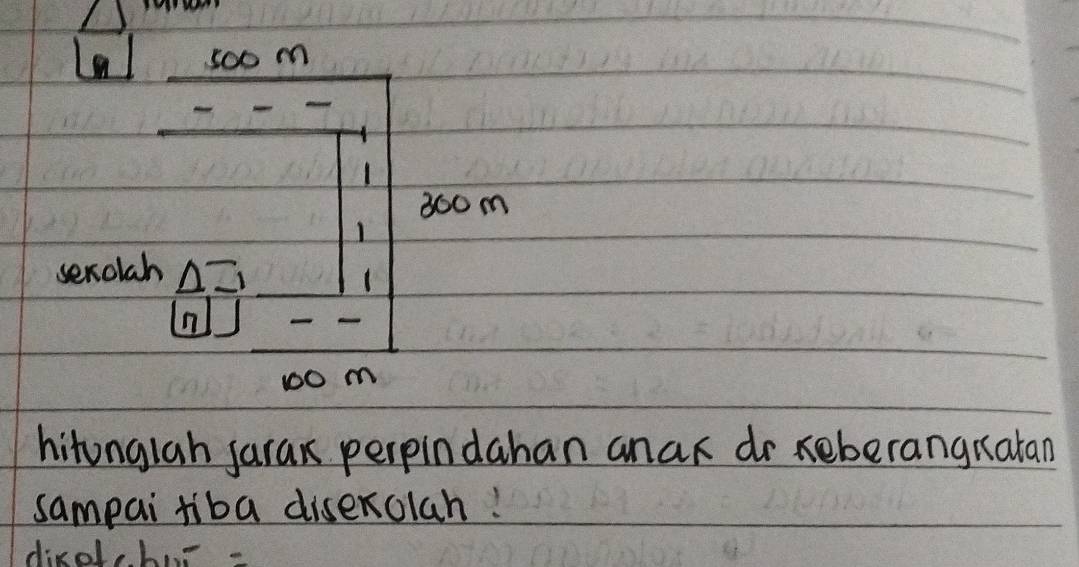 500 m
300 m
sekolah
100 m
hitunglah jarak perpindahan anak dr keberangkatan
sampai tiba disekolah!